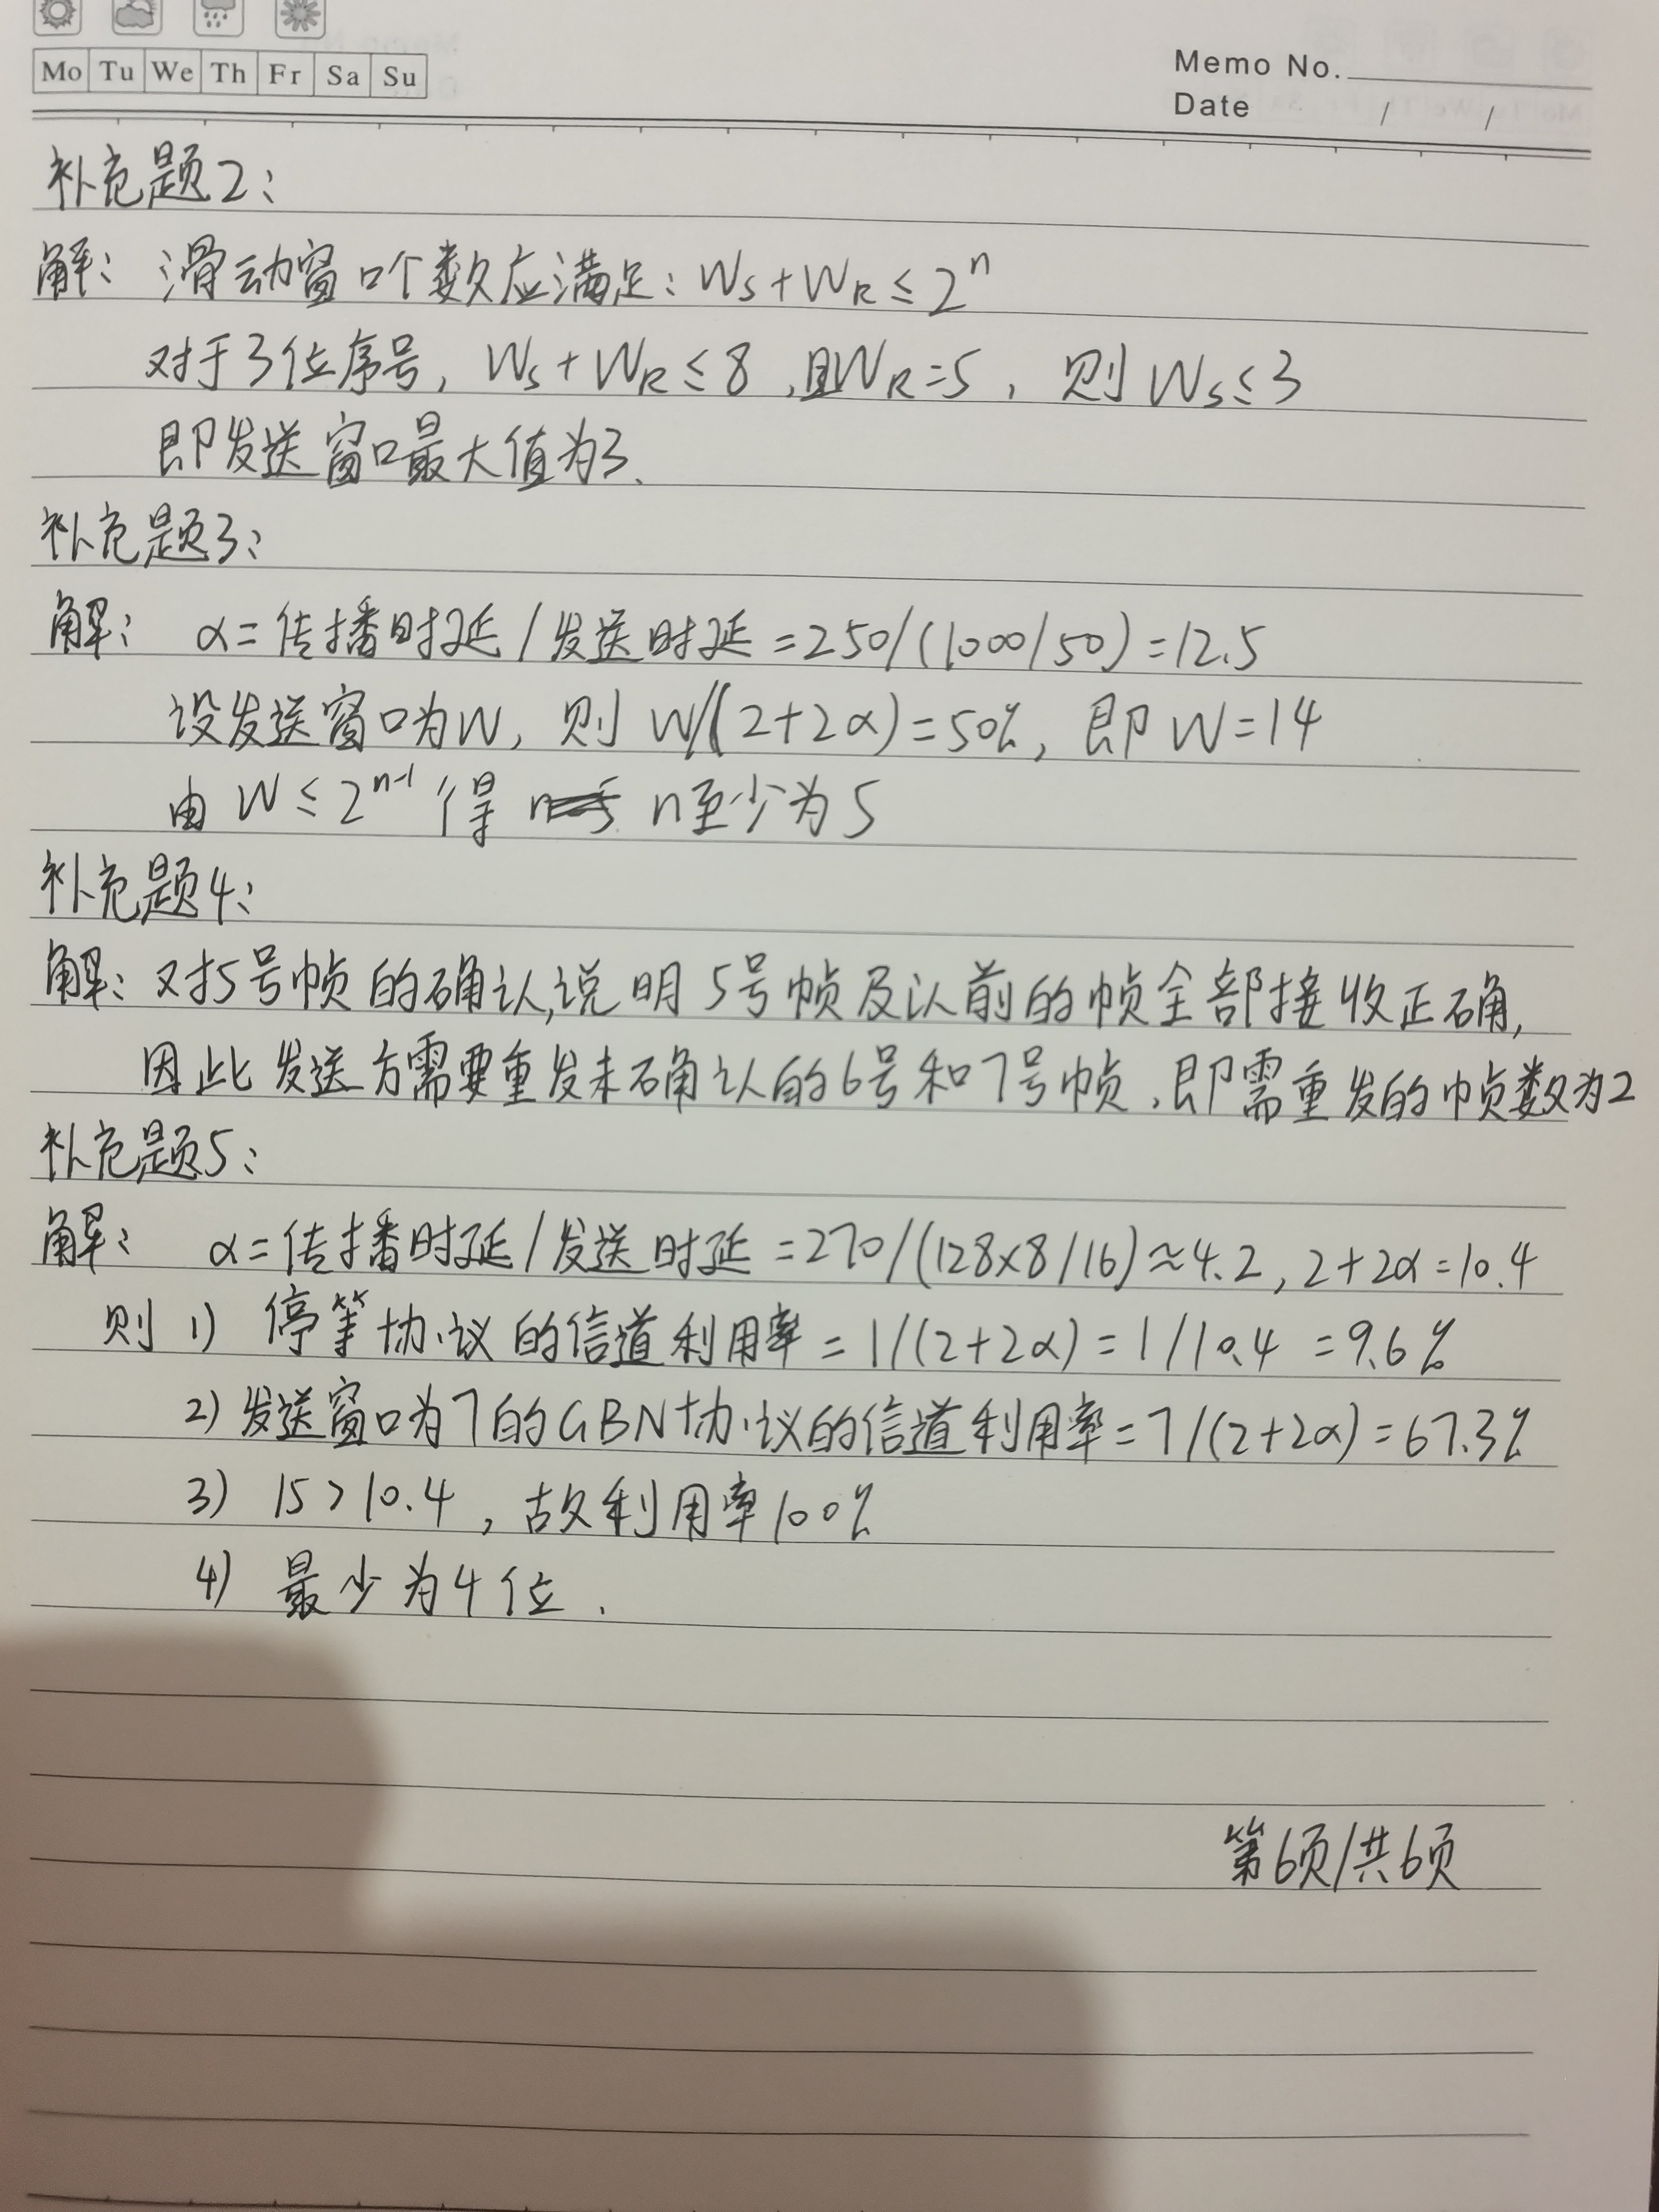 Mo Tu We Th Fr Sa Su
Memo No.
Date / /
补充题2:
解: 滑动窗口个数应满足: Ws+WR≤2ⁿ
对于3位序号, Ws+WR≤8,且WR=5, 则Ws≤3
即发送窗口最大值为3.
补充题3:
解: α=传播时延/发送时延=250/(1000/50)=12.5
设发送窗口为W, 则 W/(2+2α)=50%, 即W=14
由 W≤2ⁿ⁻¹ 得 n至少为5
补充题4:
解: 对5号帧的确认,说明5号帧及以前的帧全部接收正确,
因此发送方需要重发未确认的6号和7号帧,即需重发的帧数为2
补充题5:
解: α=传播时延/发送时延=270/(128×8/16)≈4.2, 2+2α=10.4
则 1) 停等协议的信道利用率=1/(2+2α)=1/10.4=9.6%
2) 发送窗口为7的GBN协议的信道利用率=7/(2+2α)=67.3%
3) 15>10.4, 故利用率100%
4) 最少为4位.
第6页/共6页